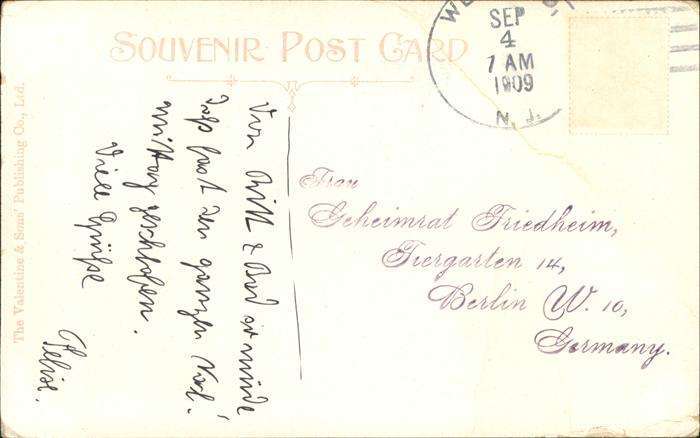 SOUVENIR POST CARD
SEP
4
1 AM
1909
N. J.
The Valentine & Sons' Publishing Co., Ltd.
Von Ritt & Bad so müde
daß fast den ganzen Nach-
mittag geschlafen.
Viele Grüße
Felix.
Frau
Geheimrat Friedheim,
Tiergarten 14,
Berlin W. 10,
Germany.